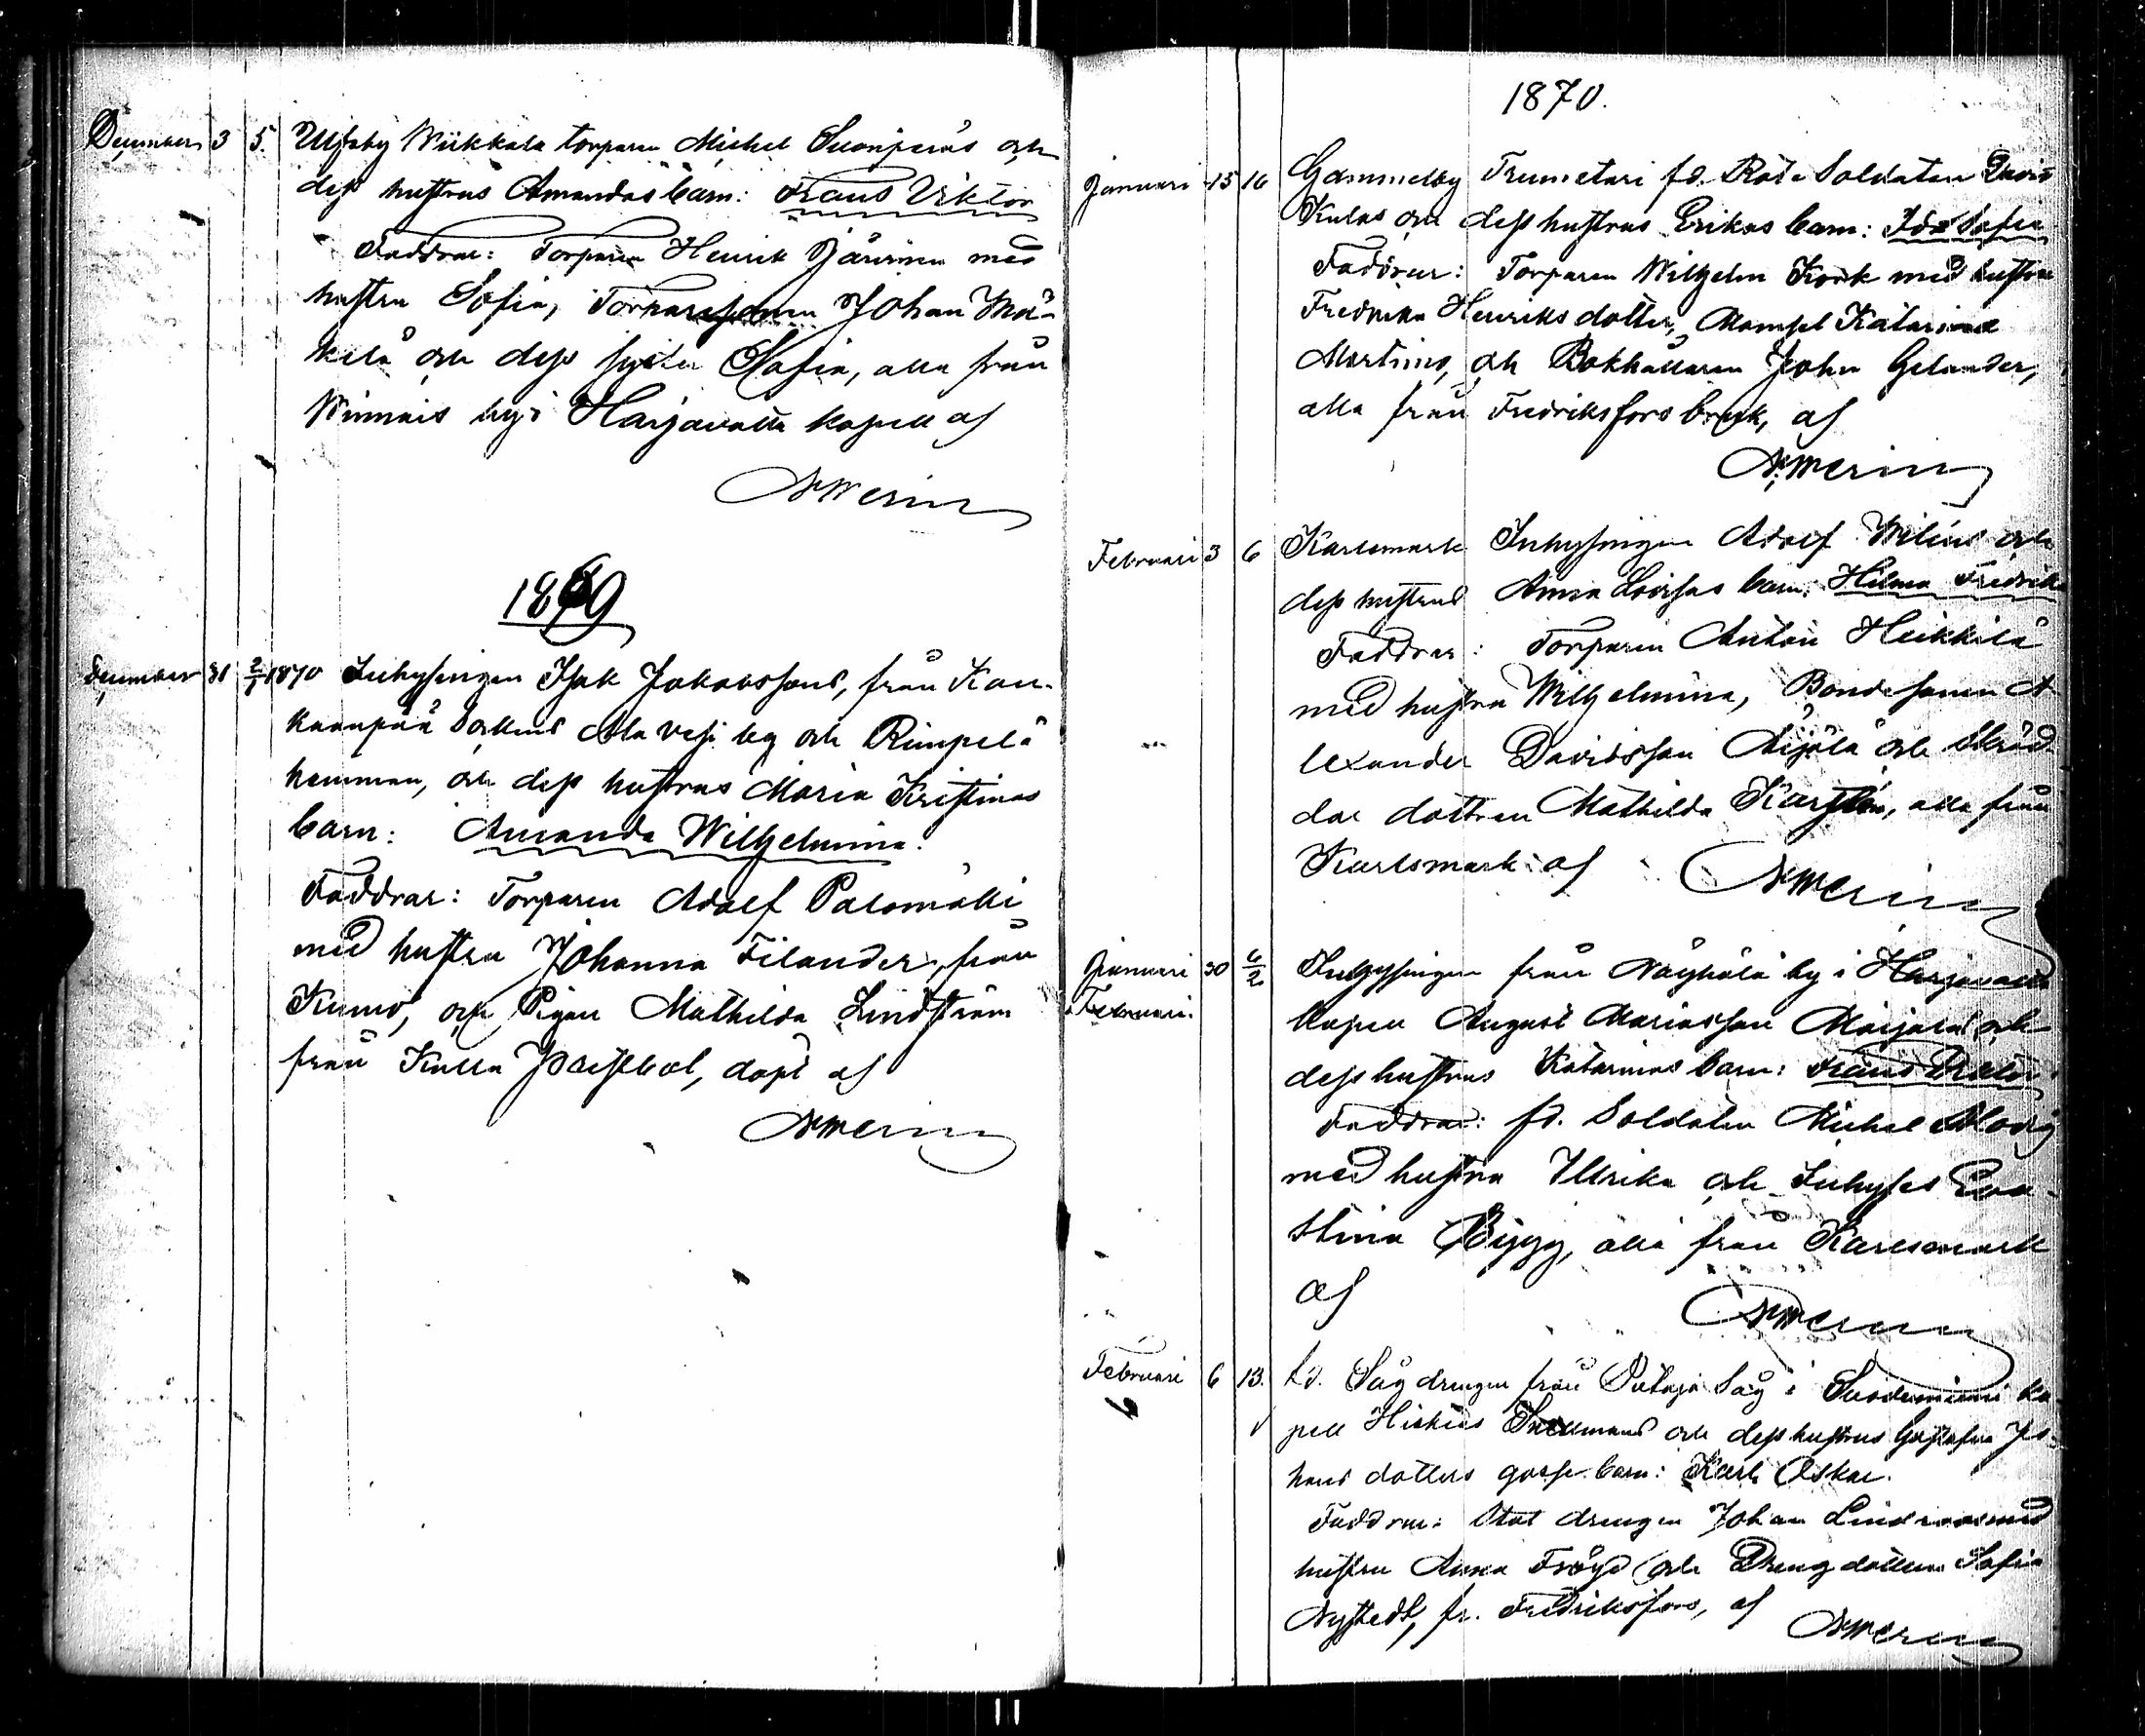 December 3 5. Ulfsby Wiikkala torparen Michel Suonpääs och
dess hustrus Amandas barn: Frans Viktor
Faddrar: Torparen Henrik Järvinen med
hustru Sofia, Torparesonen Johan Mä-
kilä och dess syster Sofia, alla från
Winnais by i Harjavalta kapell af
NWerin
1869
December 31 2/1 1870 Inhysingen Isak Jakobssons, från Kan-
kaanpää sockens Ala vesi by och Rimpelä
hemman, och dess hustrus Maria Kristinas
barn: Amanda Wilhelmina.
Faddrar: Torparen Adolf Palomäki
med hustru Johanna Filander, från
Kumo, och Pigan Mathilda Lindström
från Kulla Prestbol, döpt af
NWerin
1870.
Januari 15 16 Gammelby Trumetari fd. Rote Soldaten David
Kulas och dess hustrus Erikas barn: Ida Sofia
Faddrar: Torparen Wilhelm Kork med hustru
Fredrika Henriksdotter, Mamsel Katarina
Martins, och Bokhållaren John Gelander,
alla från Fredriksfors bruk, af
NWerin
Februari 3 6 Karlsmark Inhysingen Adolf Wilens och
dess hustrus Anna Lovisas barn: Hilma Fredrika
Faddrar: Torparen Anton Heikkilä
med hustru Wilhelmina, Bondesonen A-
lexander Davidsson Äijälä och Skräd-
dar dottren Mathilda Karstén, alla från
Karlsmark af NWerin
Januari 30 6/2 Inhysingen från Näyhälä by i Harjavalta
Februari. kapell August Mariasson Maijalas och
dess hustrus Katarinas barn: Frans Viktor
Faddrar: fd. Soldaten Michel Modig
med hustru Ulrika och Inhyses Eva
Stina Bigg, alla från Karlsmark
af NWerin
Februari 6 13. fd. Sågdrengen från Sååg i Suodenniemi ka-
pell Hiskias Snellmans och dess hustrus Gustafva Jo-
hans dotters gosse barn: Karl Oskar.
Faddrar: Stat drengen Johan Lindroos med
hustru Anna Fröyd och Dreng dottren Sofia
Nystedt, fr. Fredriksfors, af NWerin